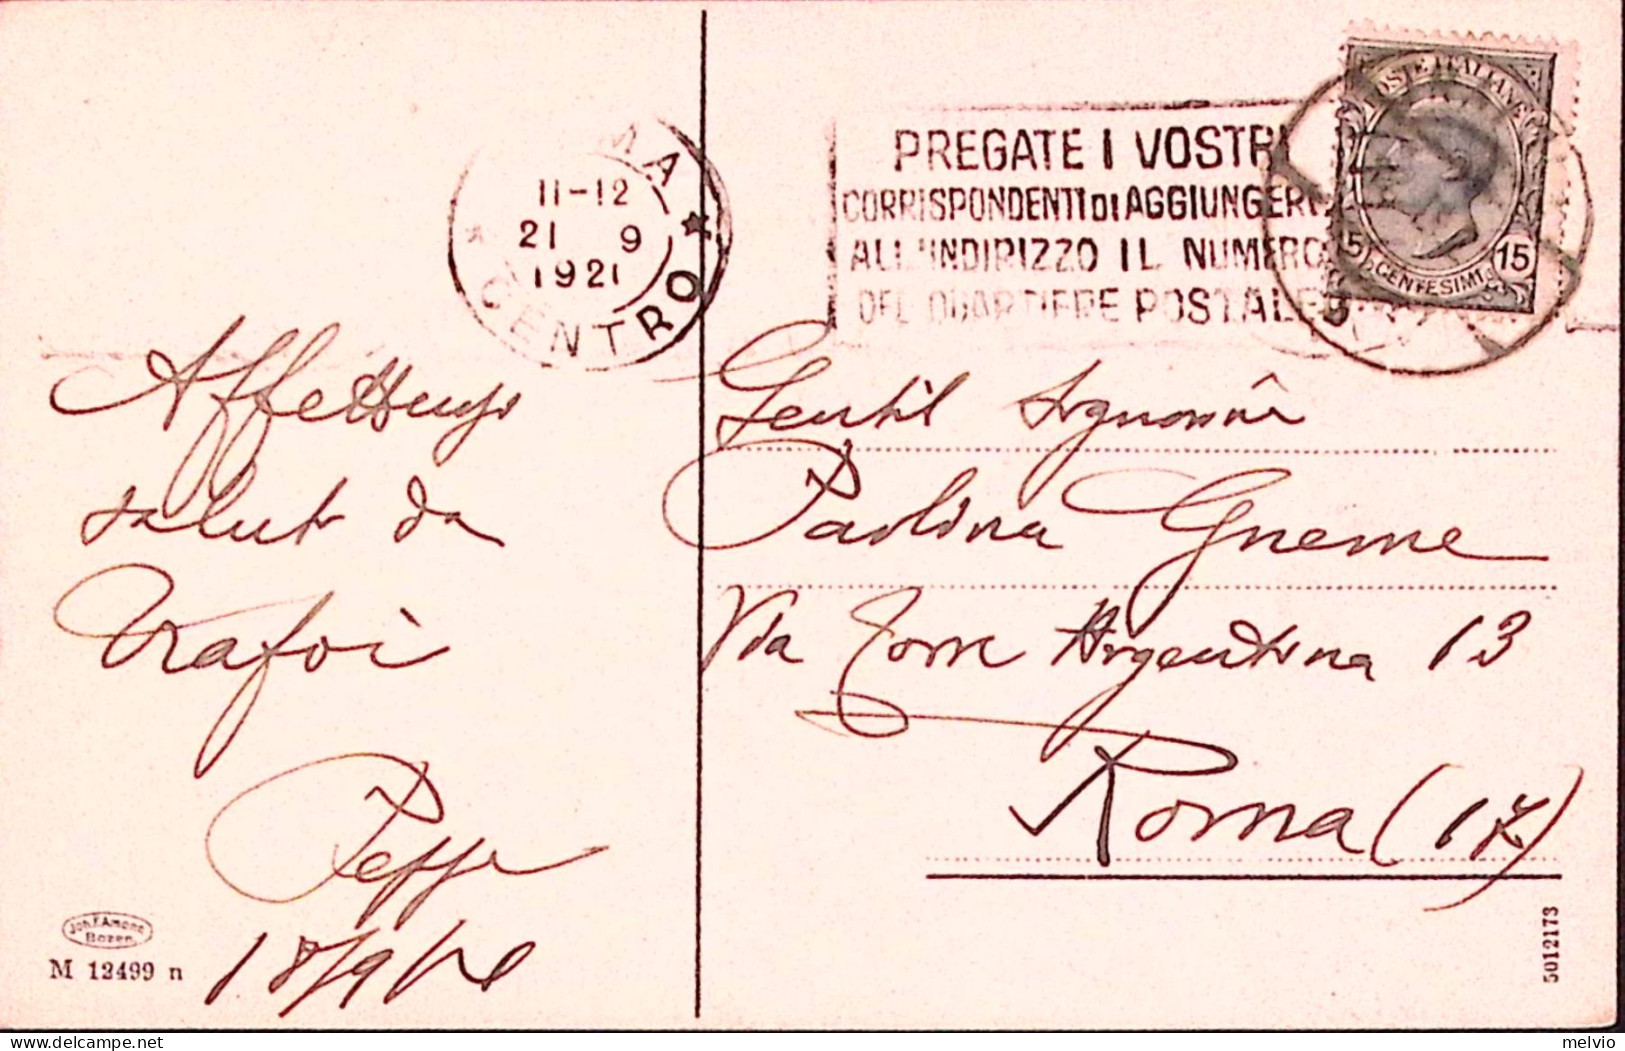 MA
11-12
21 9
1921
CENTRO
PREGATE I VOSTRI
CORRISPONDENTI DI AGGIUNGERE
ALL'INDIRIZZO IL NUMERO
DEL QUARTIERE POSTALE
POSTE ITALIANE
15 15
CENTESIMI
Affettuosi
saluti da
Trafoi
Peppe
18/9/
Gentil Signorina
Paolina Gneme
Via Torre Argentina 13
Roma (17)
Joh. F. Amonn
Bozen
M 12499 n
5012173
melvio